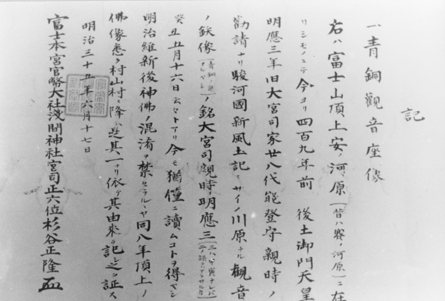 記
一青銅觀音座像
右ハ富士山頂上安ノ河原(昔ハ賽ノ河原)ニ在
リシモノニシテ今ヨリ四百九年前 後土御門天皇
明應三年旧大宮司家廿八代能登守親時ノ
勧請ナリ駿河國新風土記ニサイノ川原ナル觀音
ノ鉄像 銘大宮司親時明應三
癸丑五月十六日云々トアリ今モ猶僅ニ讀ムコトヲ得ベシ
明治維新後神佛ノ混淆ヲ禁セラルヽヤ同八年頂上ノ
佛像悉ク村山村ニ降ス是其一ナリ依テ其由来ヲ記シ之ヲ証ス
明治三十五年六月十七日
富士本宮官幣大社淺間神社宮司正六位杉谷正隆